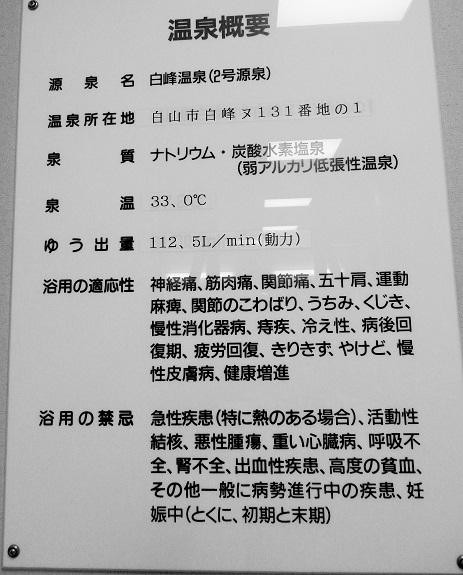 温泉概要
源泉名 白峰温泉(2号源泉)
温泉所在地 白山市白峰ヌ131番地の1
泉質 ナトリウム・炭酸水素塩泉
(弱アルカリ低張性温泉)
泉温 33、0℃
ゆう出量 112、5L／min(動力)
浴用の適応性 神経痛、筋肉痛、関節痛、五十肩、運動
麻痺、関節のこわばり、うちみ、くじき、
慢性消化器病、痔疾、冷え性、病後回
復期、疲労回復、きりきず、やけど、慢
性皮膚病、健康増進
浴用の禁忌 急性疾患(特に熱のある場合)、活動性
結核、悪性腫瘍、重い心臓病、呼吸不
全、腎不全、出血性疾患、高度の貧血、
その他一般に病勢進行中の疾患、妊
娠中(とくに、初期と末期)